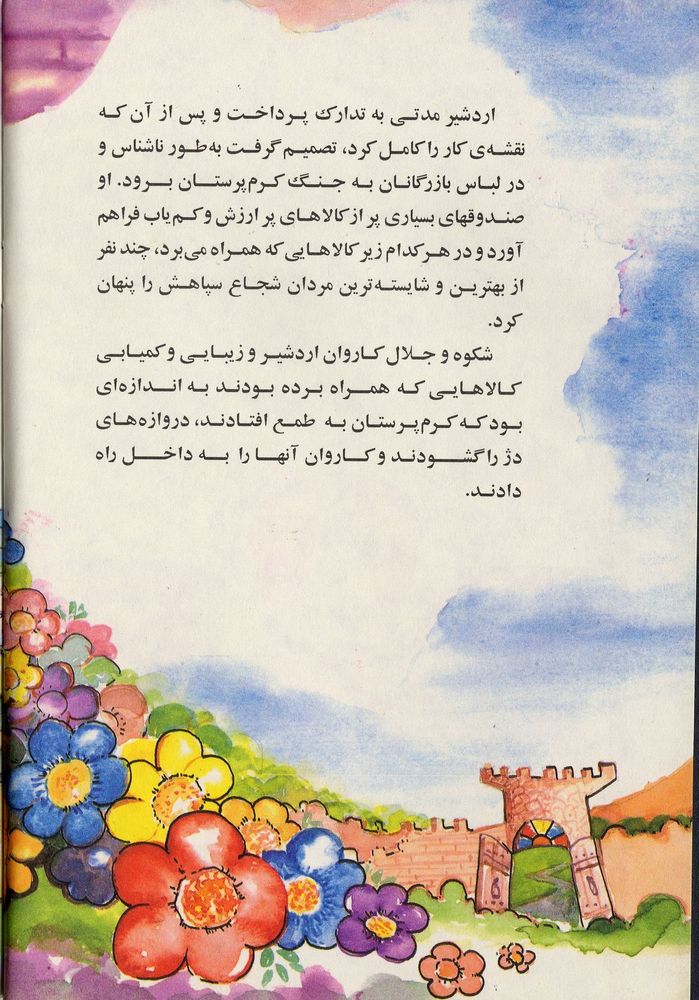 اردشیر مدتی به تدارک پرداخت و پس از آن که
نقشه‌ی کار را کامل کرد، تصمیم گرفت به‌طور ناشناس و
در لباس بازرگانان به جنگ کرم‌پرستان برود. او
صندوقهای بسیاری پر از کالاهای پر ارزش و کم‌یاب فراهم
آورد و در هر کدام زیر کالاهایی که همراه می‌برد، چند نفر
از بهترین و شایسته‌ترین مردان شجاع سپاهش را پنهان
کرد.
شکوه و جلال کاروان اردشیر و زیبایی و کمیابی
کالاهایی که همراه برده بودند به اندازه‌ای
بود که کرم‌پرستان به طمع افتادند، دروازه‌های
دژ را گشودند و کاروان آنها را به داخل راه
دادند.